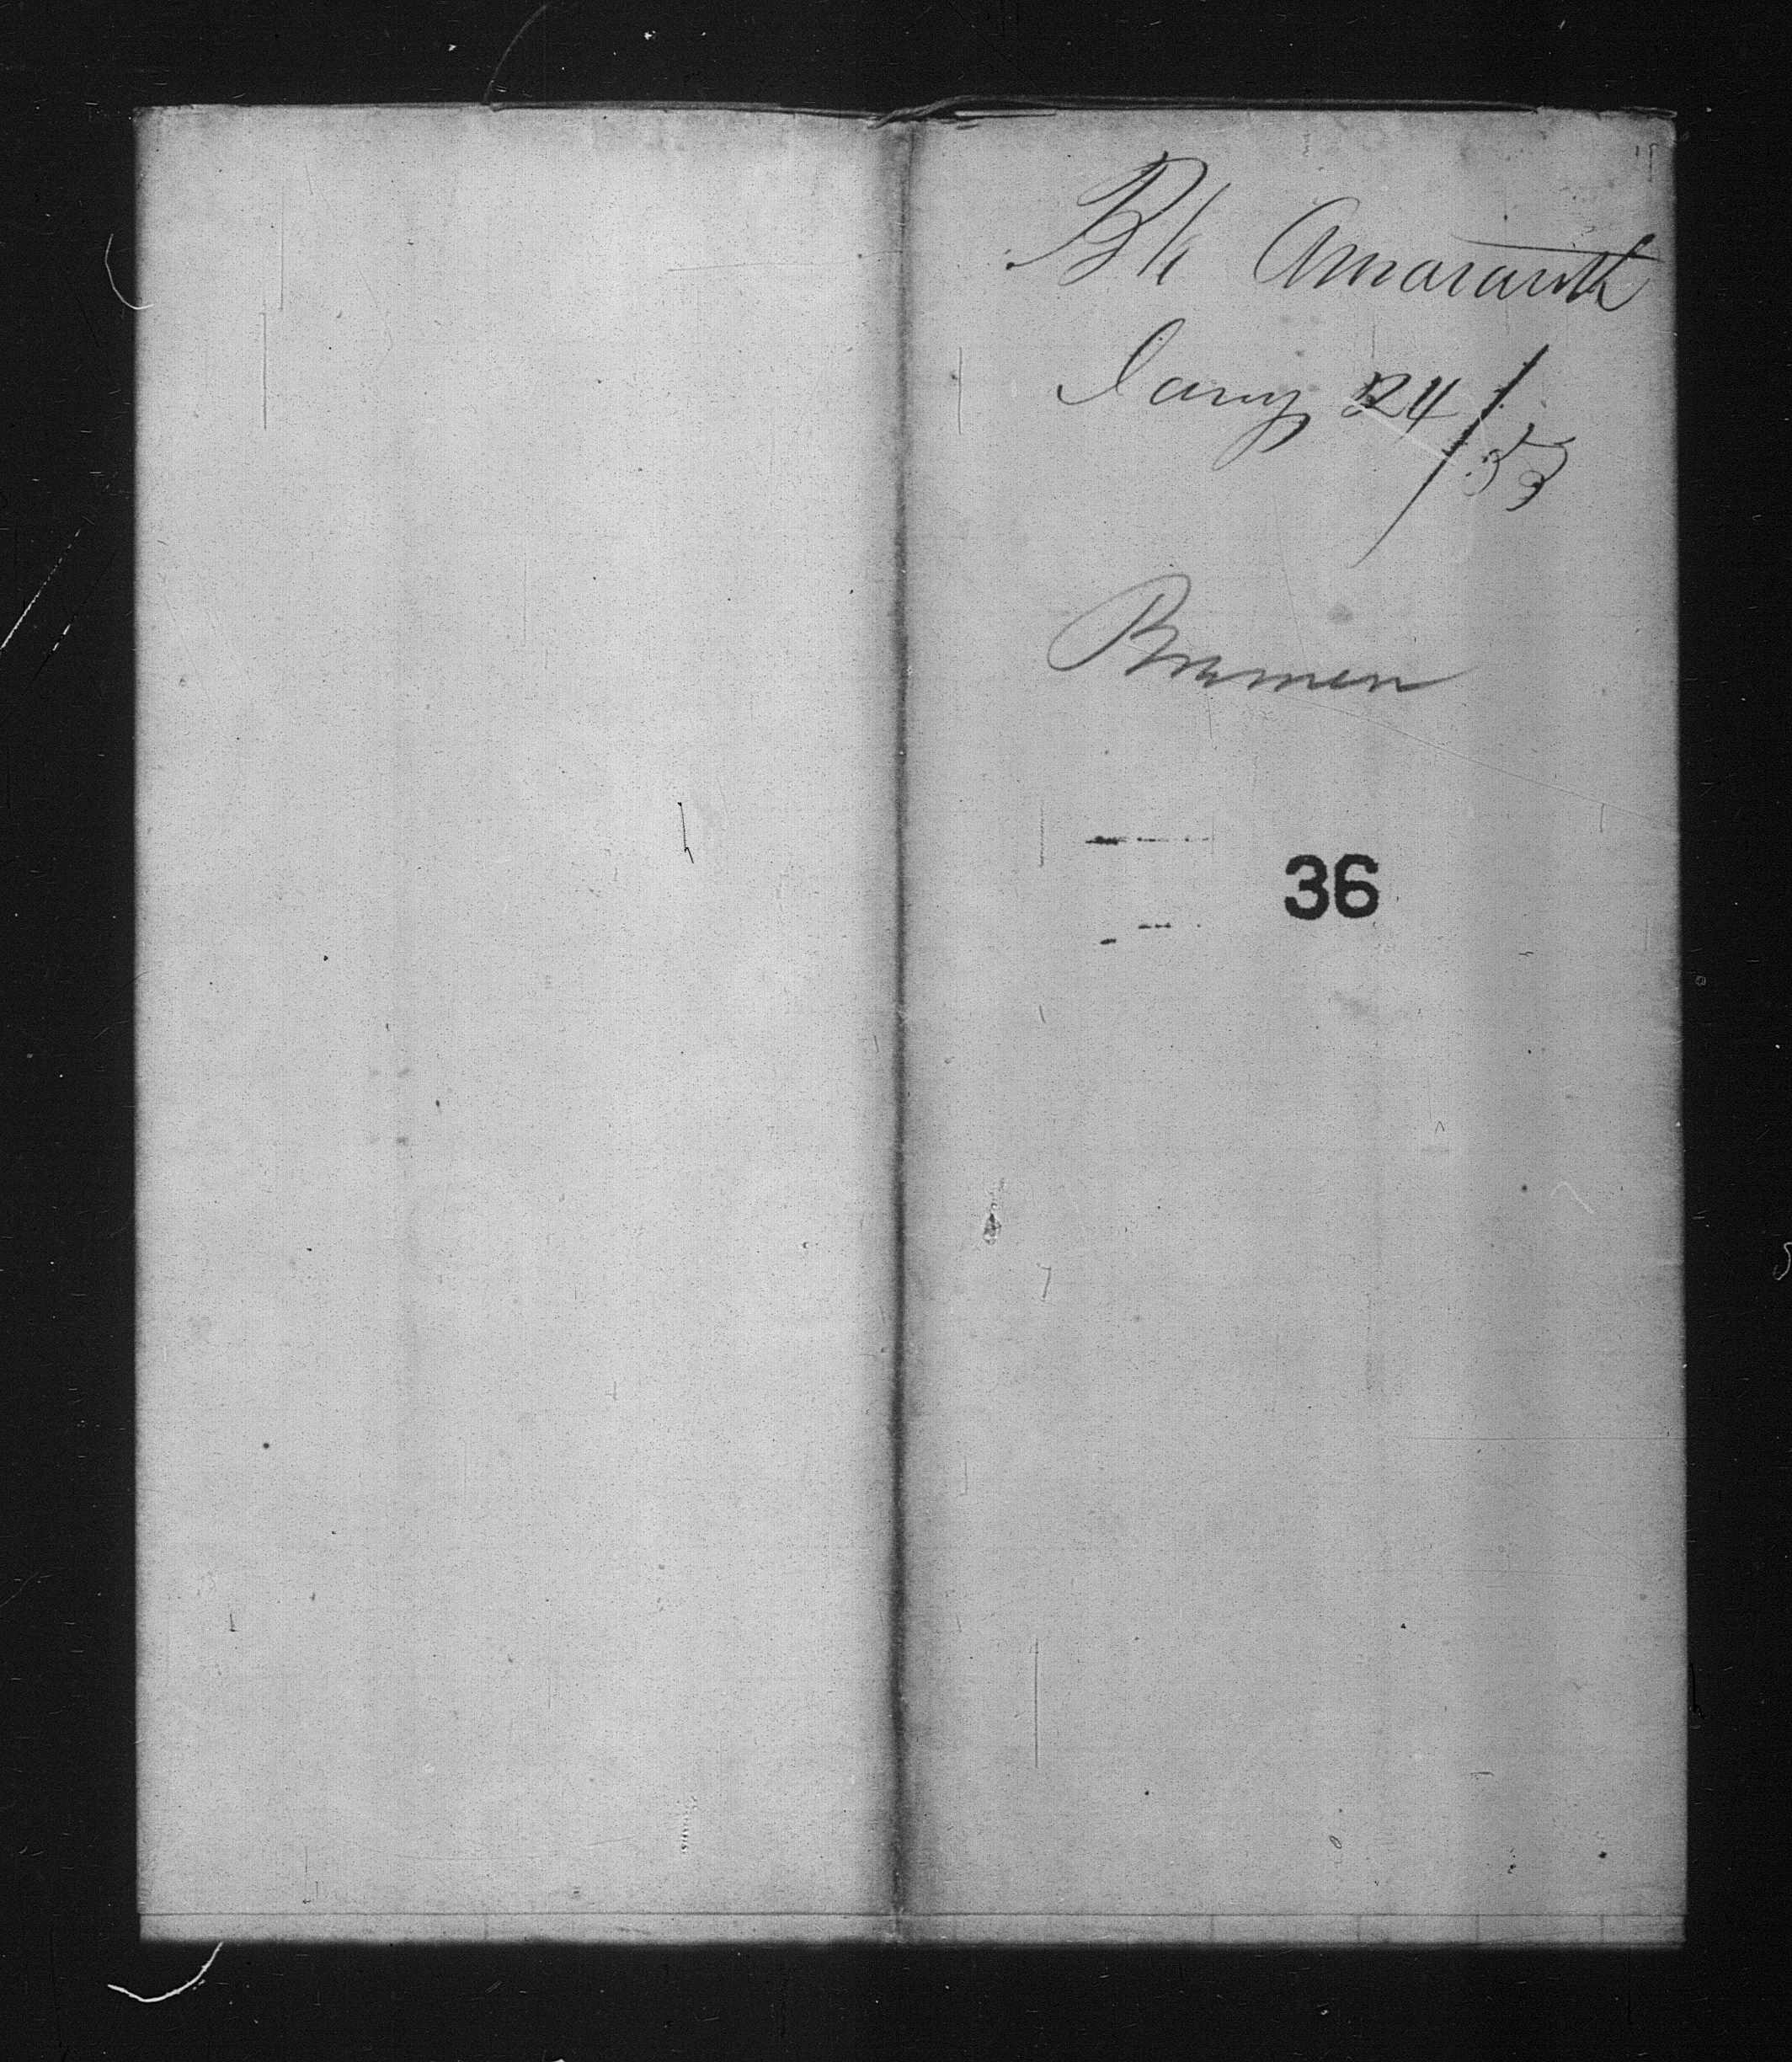 Bk Amaranth
Jany 24/53
Bremen
36